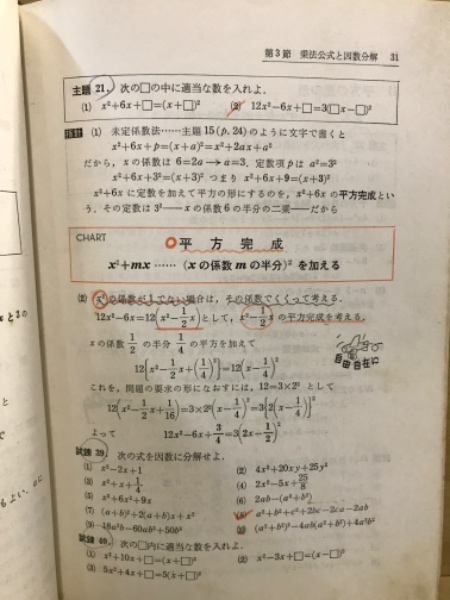 第3節 乗法公式と因数分解 31
主題 21. 次の□の中に適当な数を入れよ．
(1) x²+6x+□=(x+□)² (2) 12x²−6x+□=3(□x−□)²
指針 (1) 未定係数法……主題 15 (p. 24) のように文字で書くと
x²+6x+p=(x+a)²=x²+2ax+a²
だから，x の係数は 6=2a → a=3，定数項 p は a²=3²
x²+6x+3²=(x+3)² つまり x²+6x+9=(x+3)²
x²+6x に定数を加えて平方の形にするのを，x²+6x の平方完成とい
う．その定数は 3²——x の係数 6 の半分の二乗——だから
CHART
平方完成
x²+mx …… (x の係数 m の半分)² を加える
(2) x² の係数が 1 でない場合は，その係数でくくって考える．
12x²−6x=12(x²−1/2x) として，x²−1/2x の平方完成を考える．
x の係数 1/2 の半分 1/4 の平方を加えて
12{x²−1/2x+(1/4)²}=12(x−1/4)²
自由自在に
これを，問題の要求の形になおすには，12=3×2² として
12(x²−1/2x+1/16)=3×2²(x−1/4)²=3{2(x−1/4)}²
よって 12x²−6x+3/4=3(2x−1/2)²
試練 39. 次の式を因数に分解せよ．
(1) x²−2x+1 (2) 4x²+20xy+25y²
(3) x²+x+1/4 (4) 2x²−5x+25/8
(5) x³+6x²+9x (6) 2ab−(a²+b²)
(7) (a+b)²+2(a+b)x+x² (8) a²+b²+c²+2bc−2ca−2ab
(9) −18a²b−60ab²+50b³ (10) (a²+b²)²−4ab(a²+b²)+4a²b²
試練 40. 次の□内に適当な数を入れよ．
(1) x²+10x+□=(x+□)² (2) x²−3x+□=(x−□)²
(3) 5x²+4x+□=5(x+□)²